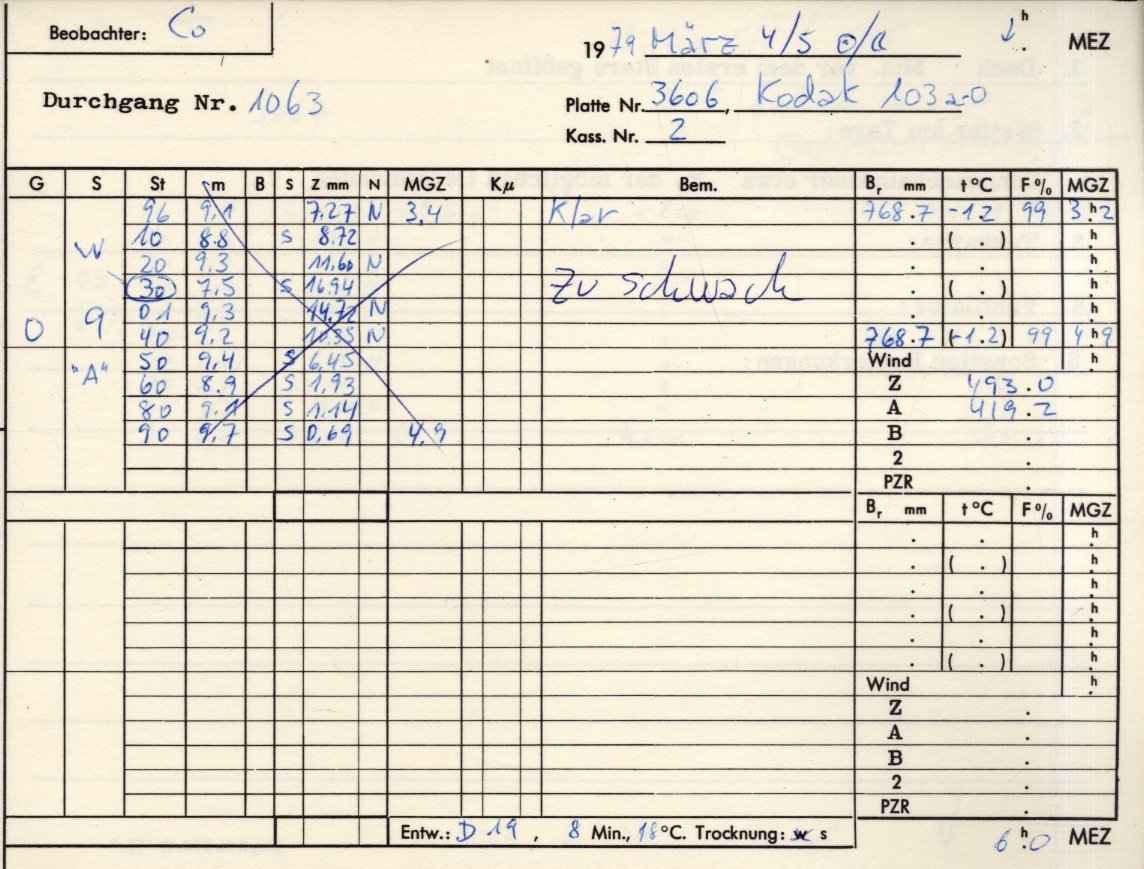 Beobachter: Co
1979 März 4/5 ☉/☾ h . MEZ
Durchgang Nr. 1063
Platte Nr. 3606, Kodak 103a-O
Kass. Nr. 2
G S St m B S Z mm N MGZ Kμ Bem. Br mm t°C F% MGZ
96 9.1 7.27 N 3,4 Klar 768.7 -1.2 99 3h.2
W 10 8.8 S 8.72 . ( . ) h
20 9.3 11.60 N . . h
30 7.5 S 16.94 zu schwach . ( . ) h
0 9 01 9,3 14.72 N . . h
40 9.2 10.35 N 768.7 (-1.2) 99 4h9
50 9.4 S 6,45 Wind h
"A" 60 8.9 S 1,93 Z 493.0
80 9.1 S 1.14 A 419.2
90 9.7 S 0,69 4,9 B .
2 .
PZR .
Br mm t°C F% MGZ
. . h
. ( . ) h
. . h
. ( . ) h
. . h
. ( . ) h
Wind h
Z .
A .
B .
2 .
PZR .
Entw.: D 19, 8 Min., 18°C. Trocknung: w s
6h.0 MEZ